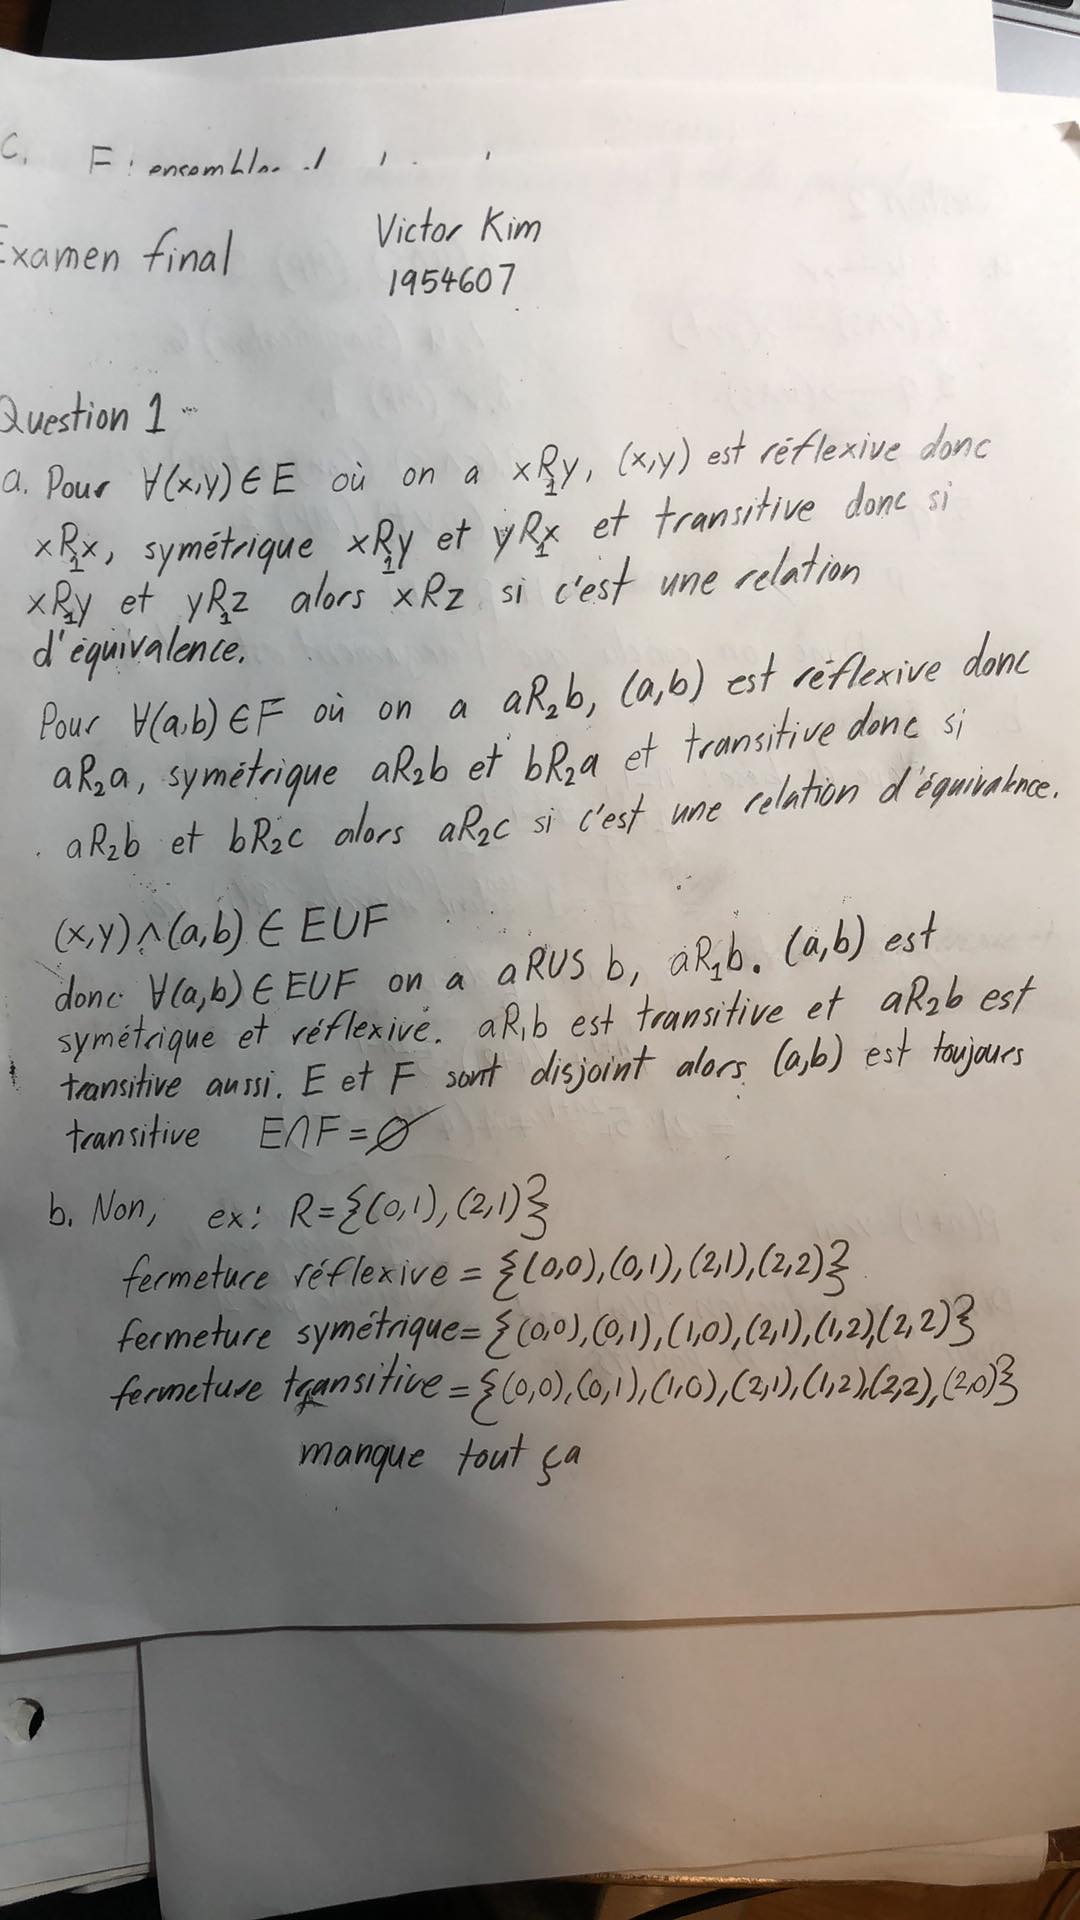 C. F: ensemble
Examen final
Victor Kim
1954607
Question 1
a. Pour ∀(x,y) ∈ E où on a xR₁y, (x,y) est réflexive donc
xR₁x, symétrique xR₁y et yR₁x et transitive donc si
xR₁y et yR₁z alors xRz si c'est une relation
d'équivalence.
Pour ∀(a,b) ∈ F où on a aR₂b, (a,b) est réflexive donc
aR₂a, symétrique aR₂b et bR₂a et transitive donc si
aR₂b et bR₂c alors aR₂c si c'est une relation d'équivalence.
(x,y)∧(a,b) ∈ EUF
donc ∀(a,b) ∈ EUF on a aRUS b, aR₁b. (a,b) est
symétrique et réflexive. aR₁b est transitive et aR₂b est
transitive aussi. E et F sont disjoint alors (a,b) est toujours
transitive E∩F=∅
b. Non, ex: R={(0,1),(2,1)}
fermeture réflexive = {(0,0),(0,1),(2,1),(2,2)}
fermeture symétrique= {(0,0),(0,1),(1,0),(2,1),(1,2),(2,2)}
fermeture transitive={(0,0),(0,1),(1,0),(2,1),(1,2),(2,2),(2,0)}
manque tout ça